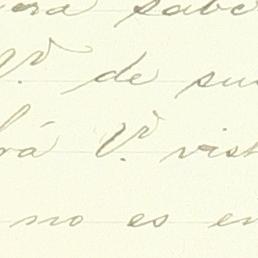 sabe
V. de su
rá V. vist
no es en